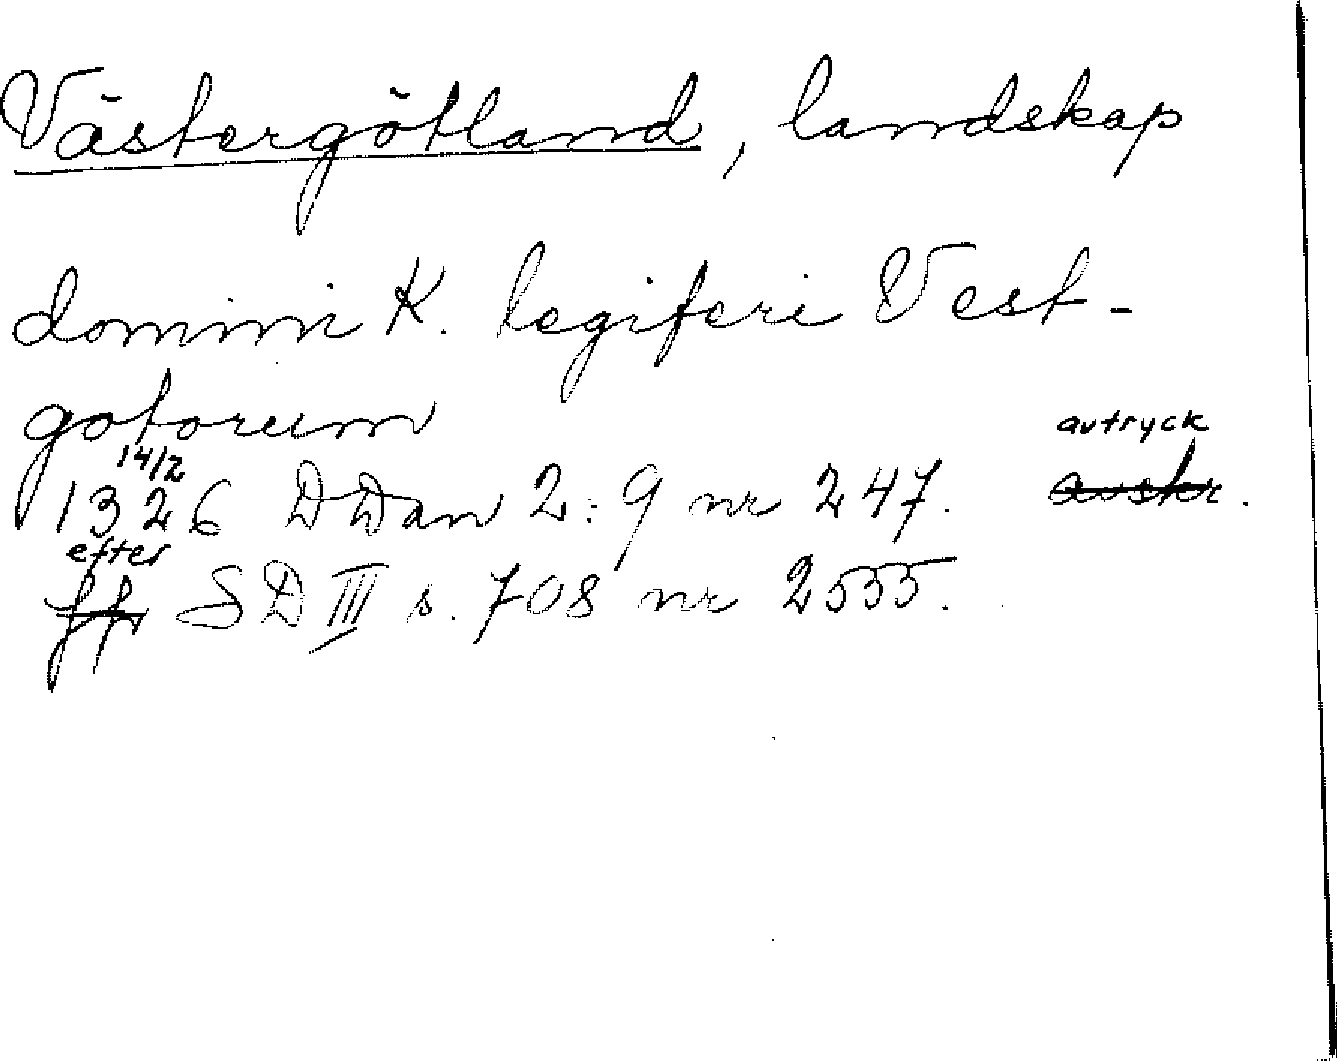 Västergötland, landskap
domini K. legiferi Vest-
gotorum
14/2 avtryck
1326 DDan 2:9 nr 247. avskr.
efter
ff SD III s. 708 nr 2555.